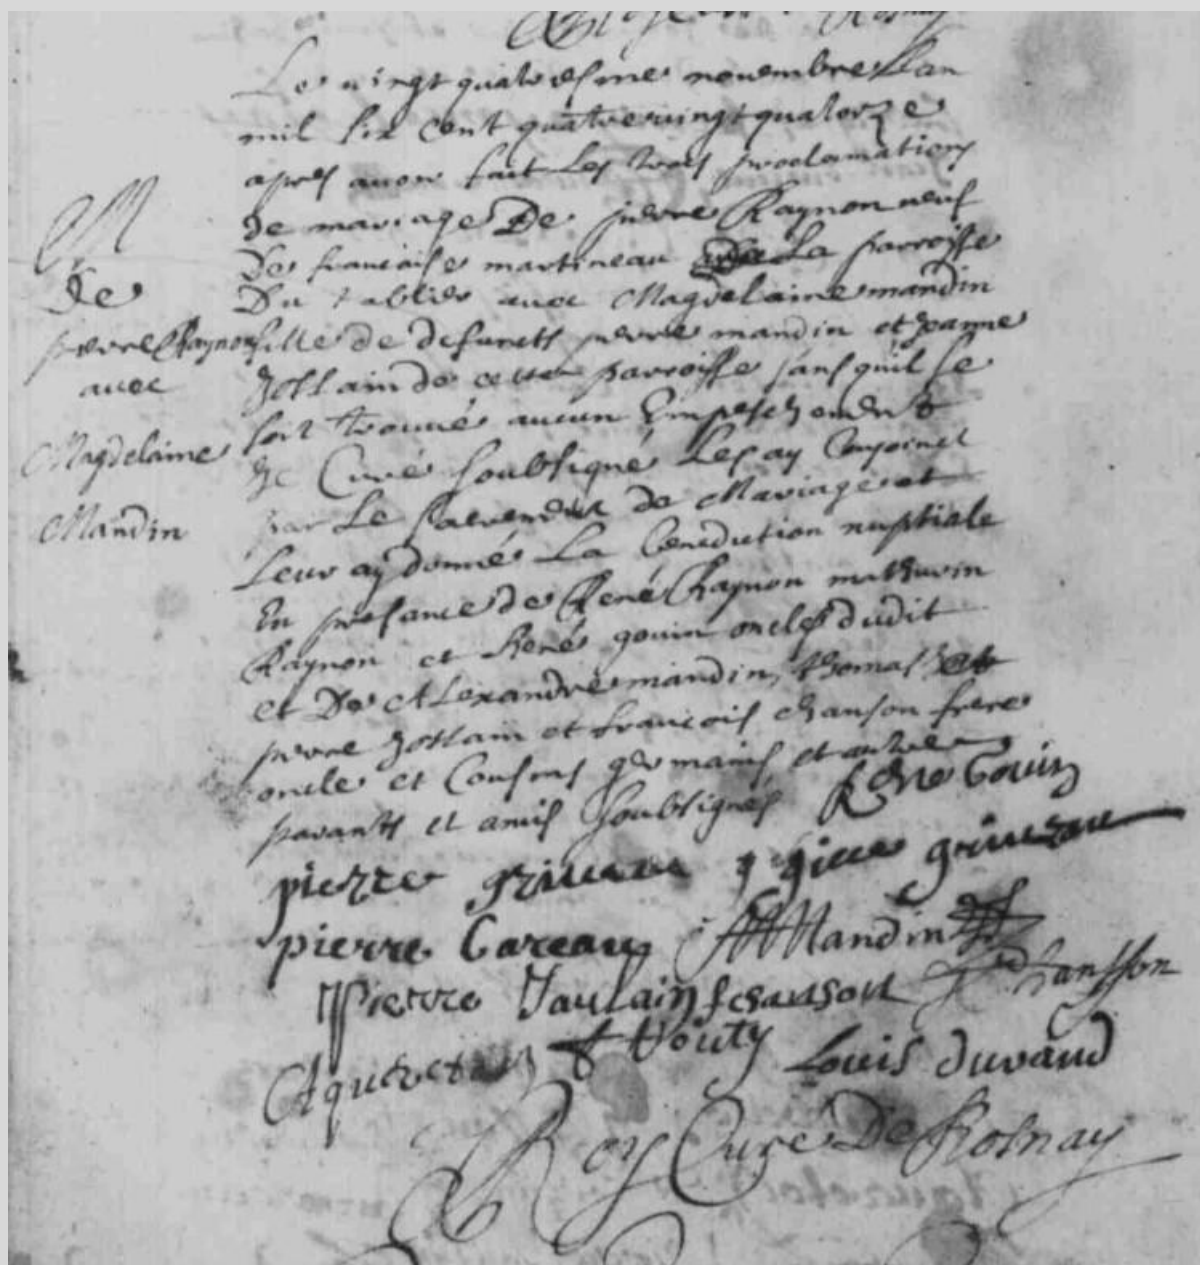 Rosnay
Le vingt quatriesme novembre Lan
mil six cent quatrevingt quatorze
apres avoir fait Les trois proclamations
de mariage De pierre Raynon veuf
De francoise martineau de La parroisse
Du tablier avec Magdelaine mandin
fille de defuncts pierre mandin et Jeanne
Jollain de cette parroisse sans quil se
soit trouvé aucun Empeschement
Je Curé soubsigné Les ay conjoinct
par Le sacrement de Mariage et
Leur ay donné La benediction nuptiale
En presance de René Raynon mathurin
Raynon et René gouin oncles dudit
et De Alexandre mandin, thomas et
pierre Jollain et francois chanson frere
oncle et Cousins germains et autres
parants et amis soubsignés
M
De
pierre Raynon
avec
Magdelaine
Mandin
René Gouin
pierre
pierre Gareau Mandin
Pierre Jaulain fchanson Chansson
Louis durand
Roy Curé De Rosnay